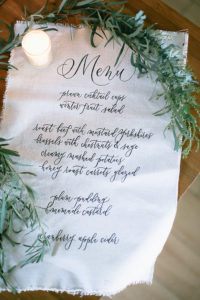 Menu
prawn cocktail cups
winter fruit salad
roast beef with mustard yorkshires
brussels with chestnuts & sage
creamy mashed potatoes
honey roast carrots glazed
plum pudding
homemade custard
cranberry apple cider